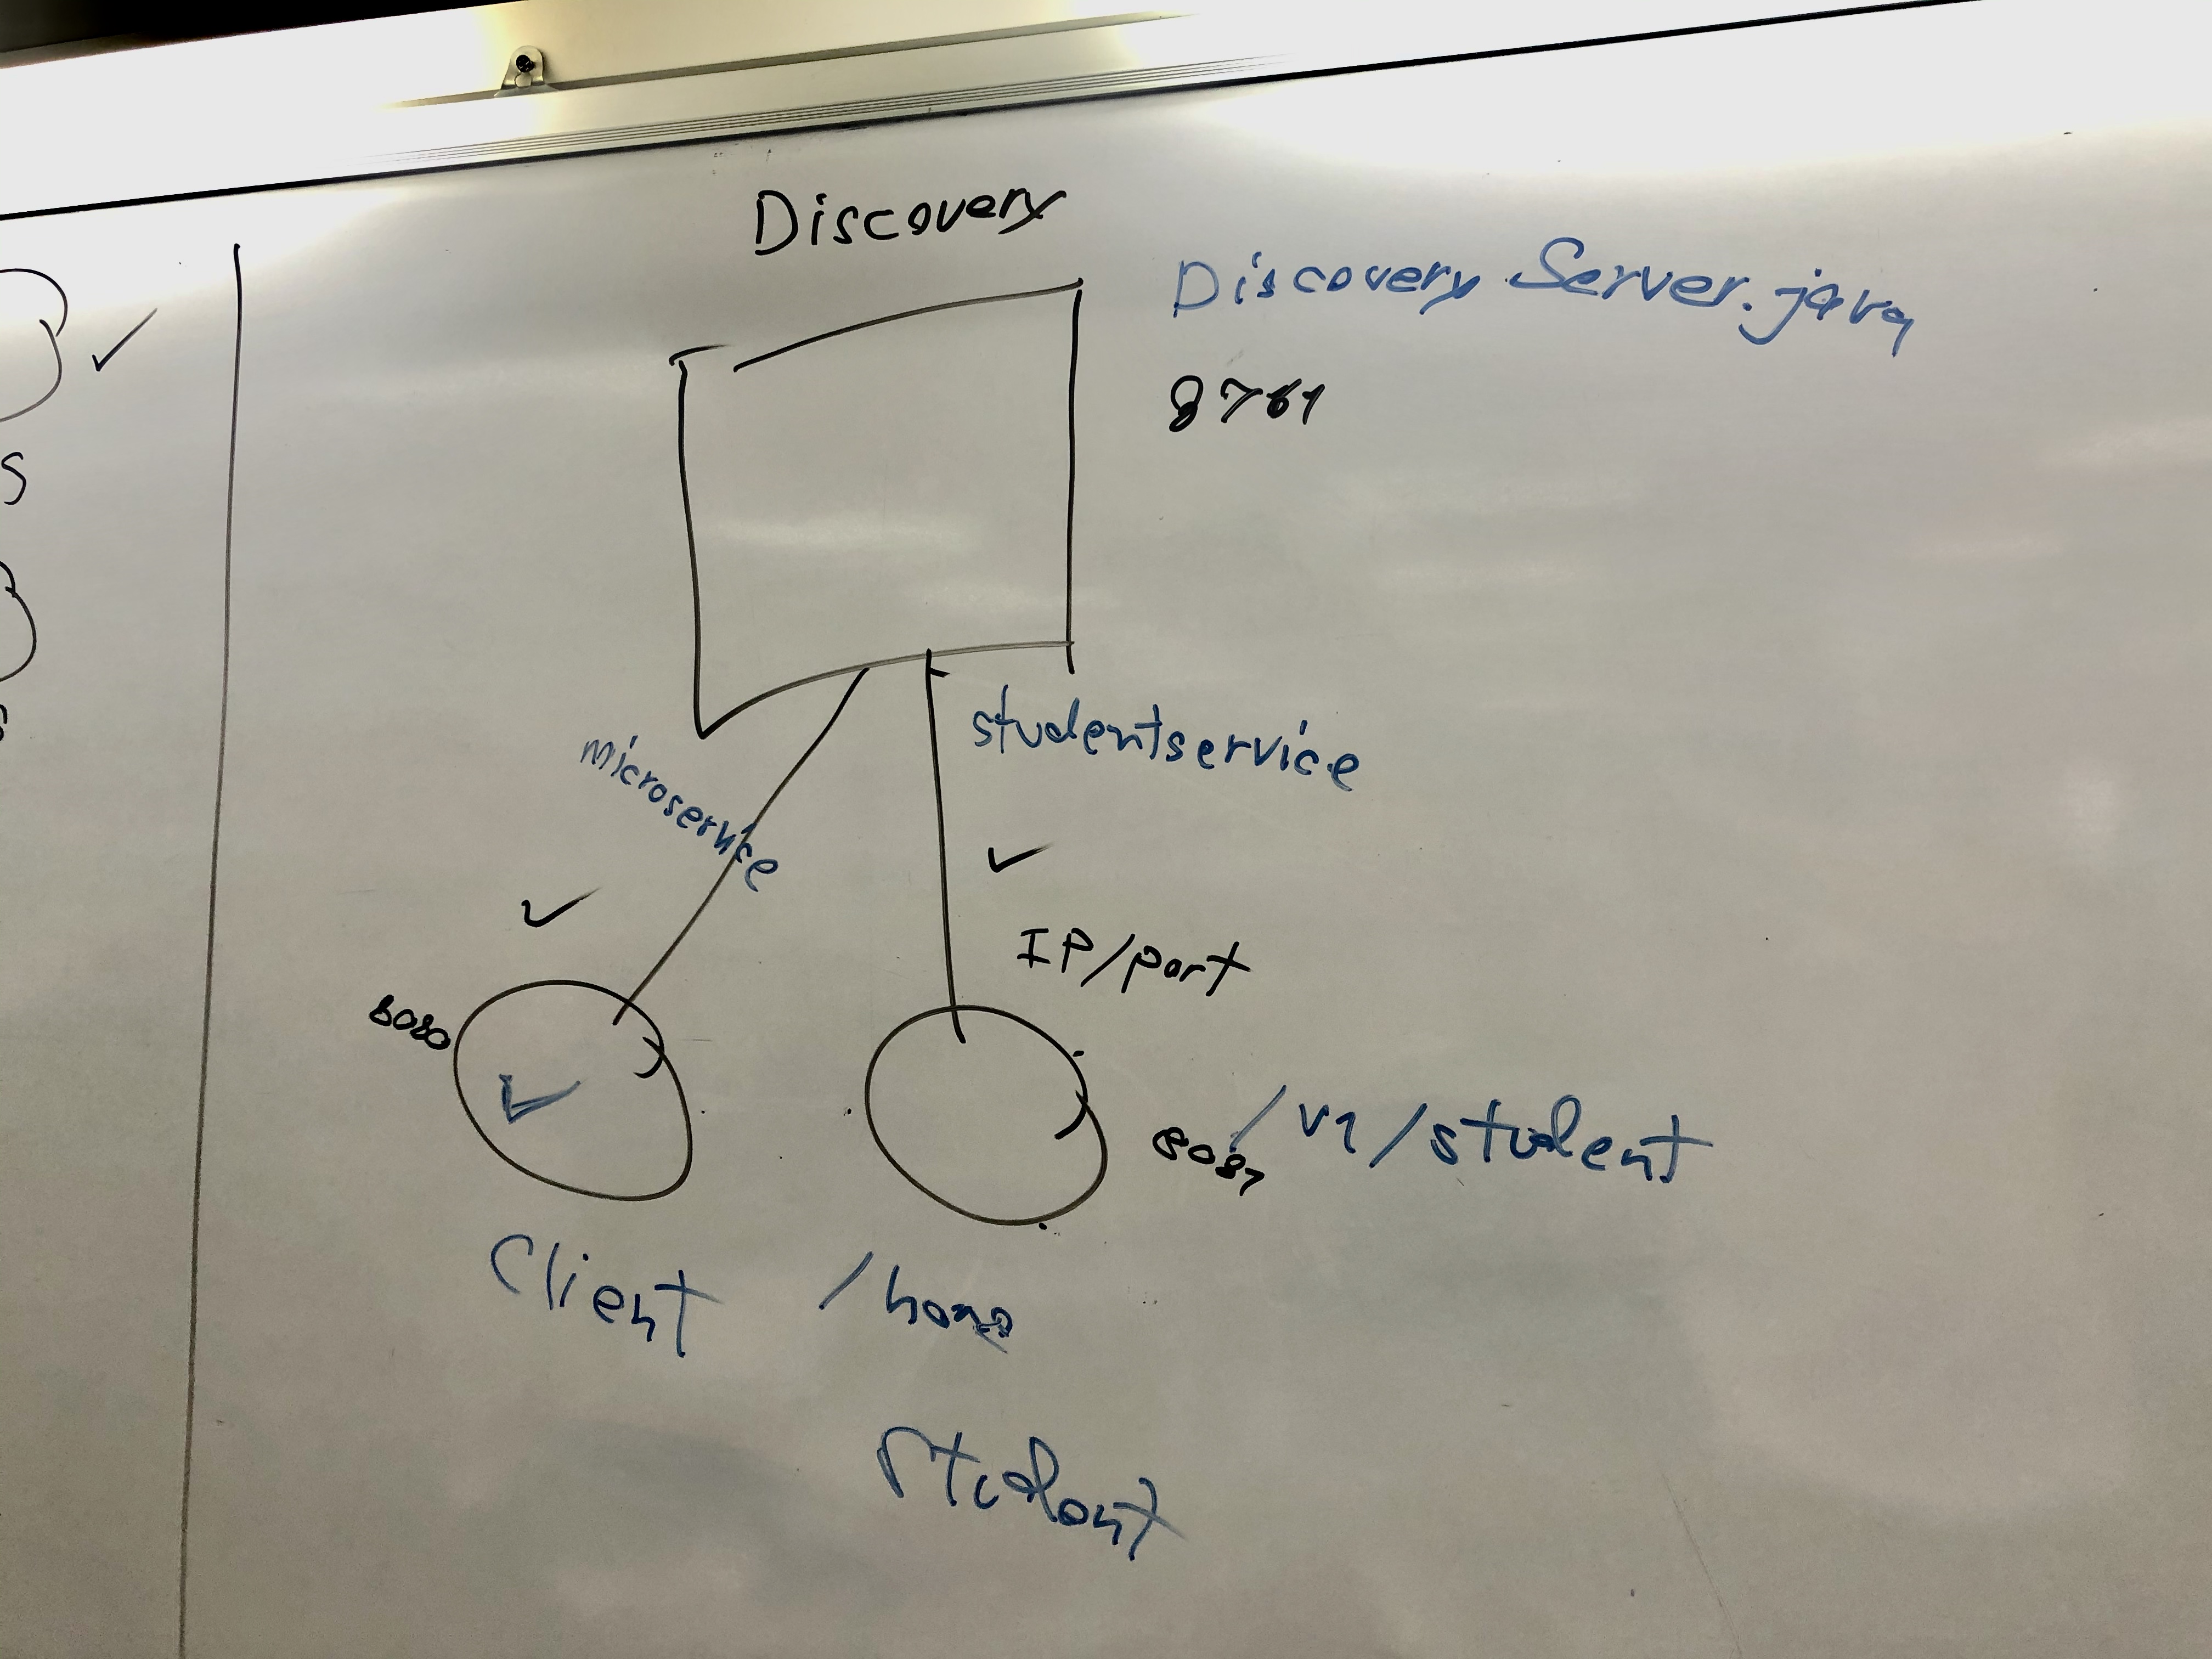 Discovery
Discovery Server.java
8761
S
microservice
studentservice
IP/port
8080
8087
/v1/student
Client
/home
Student